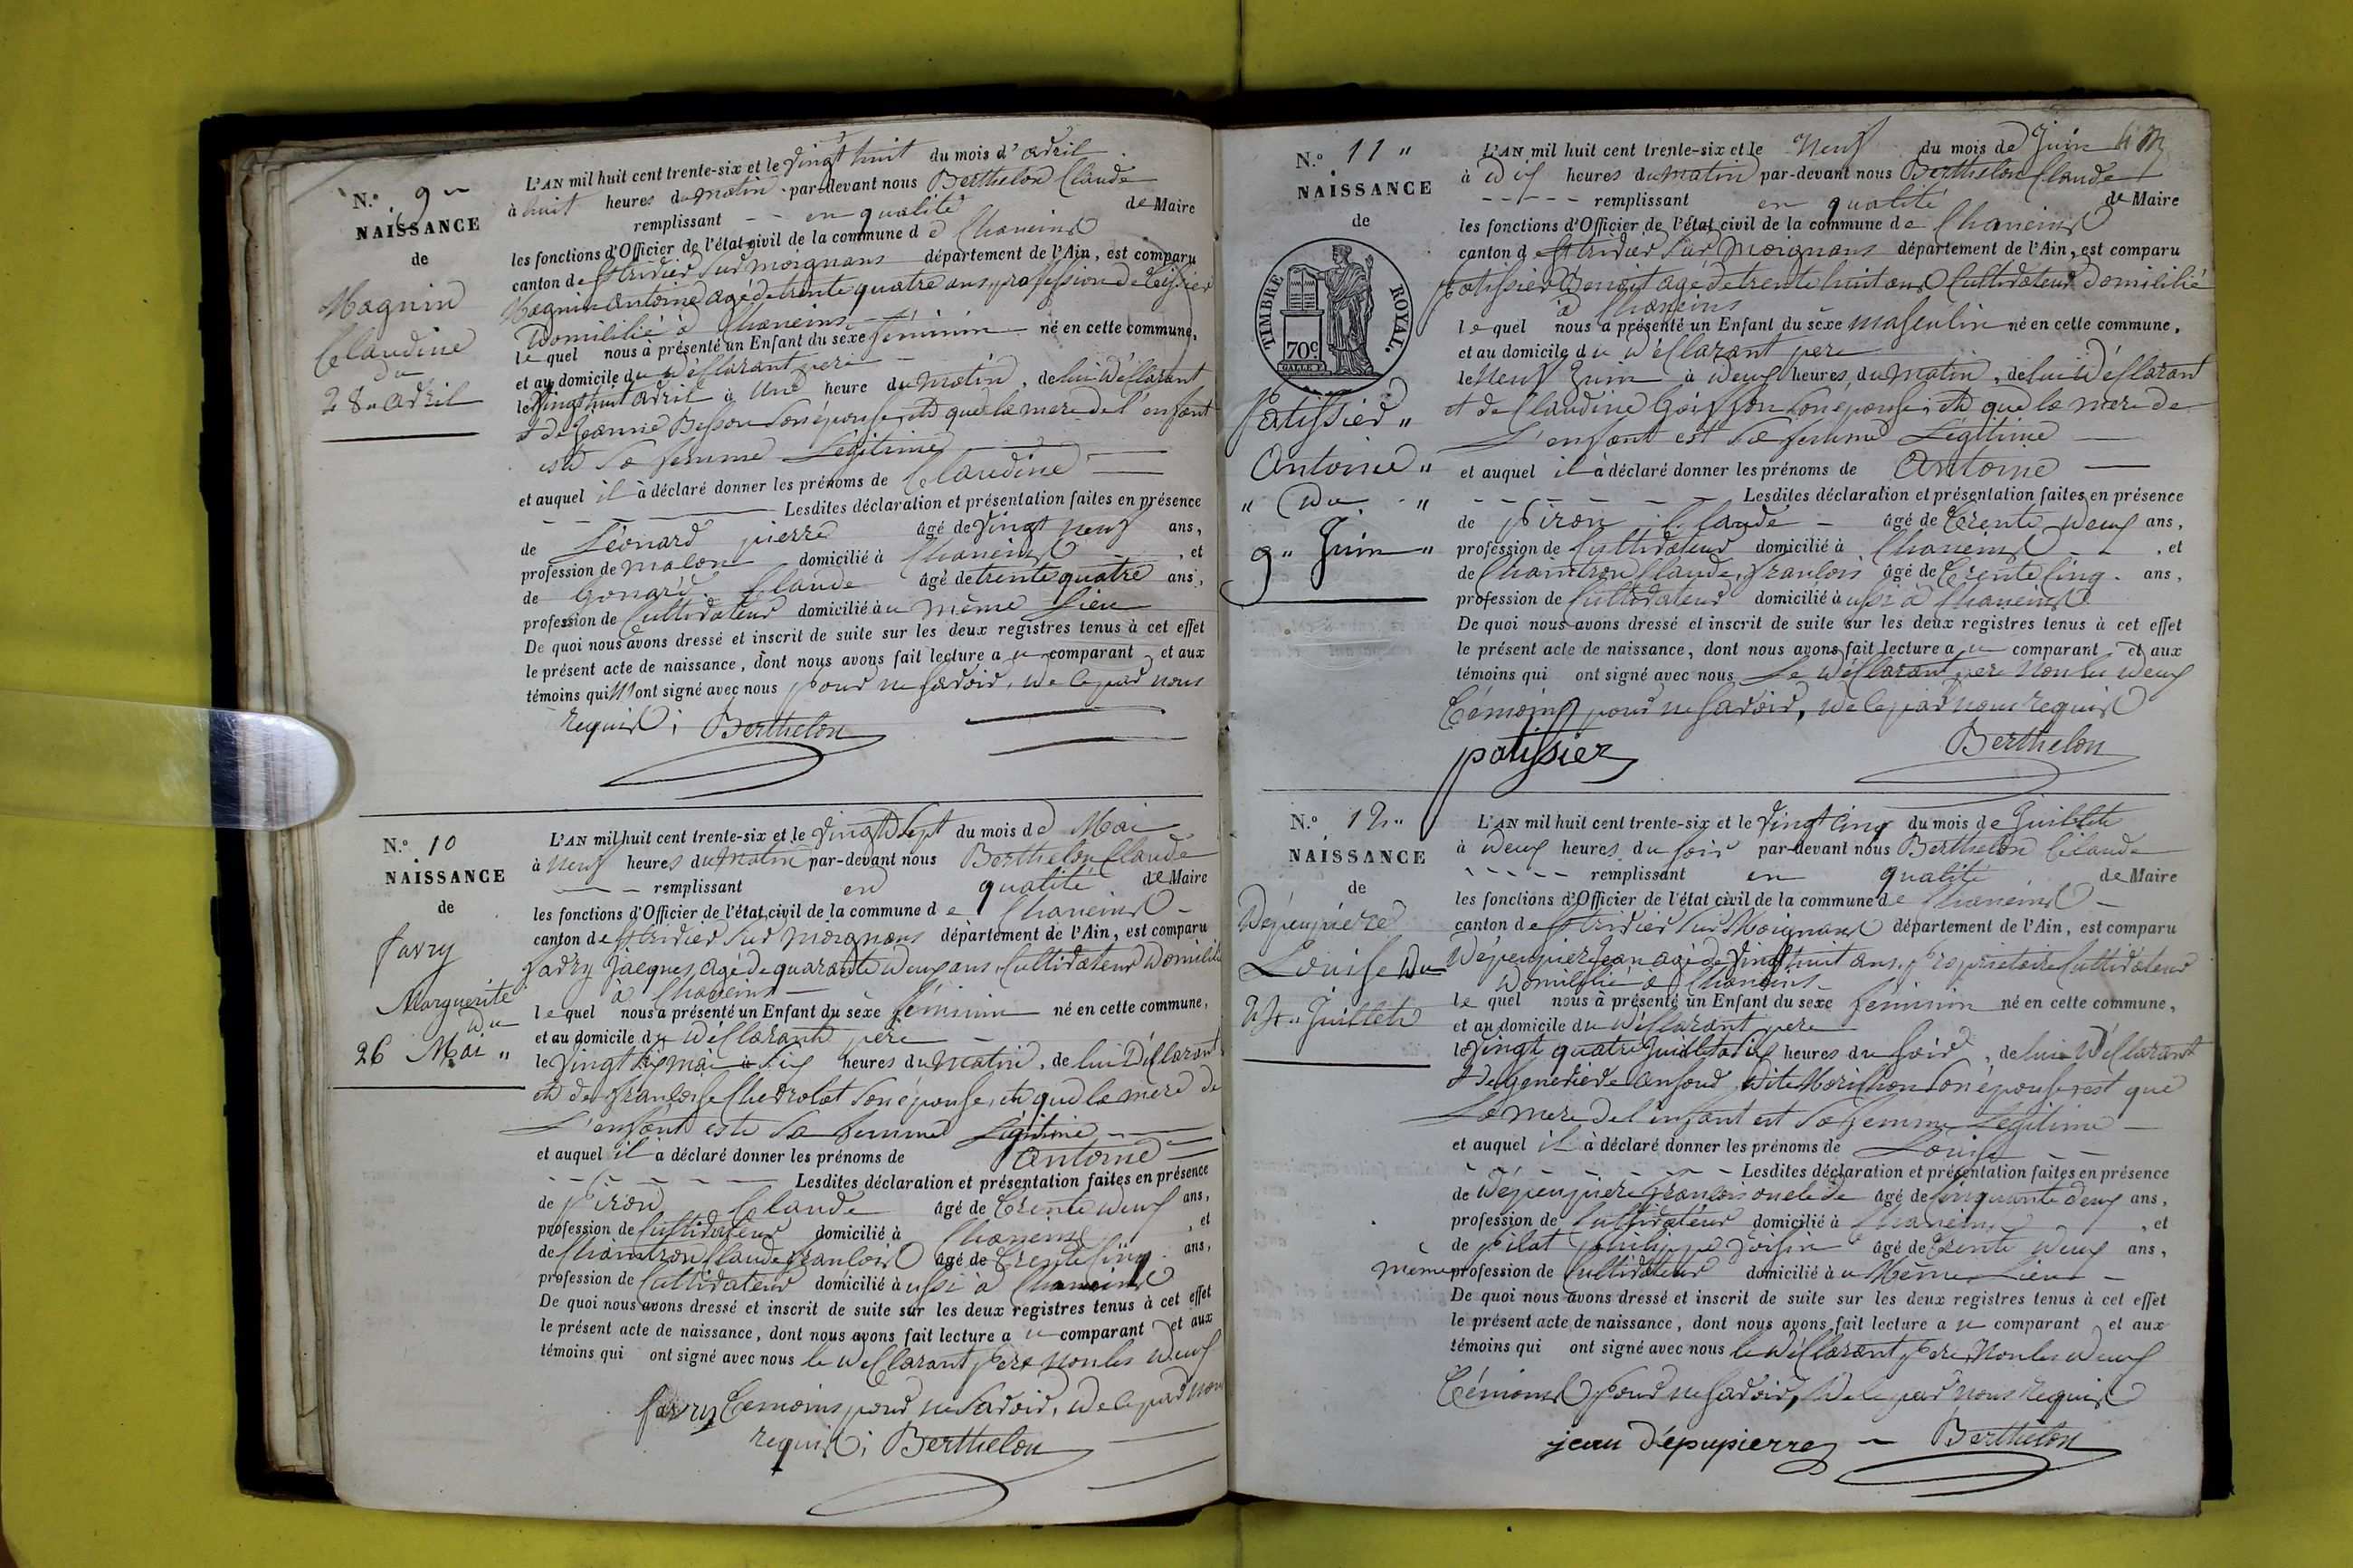 N.º 9"
NAISSANCE
de
Magnin
Claudine
du
28 avril
L'AN mil huit cent trente-six et le vingt huit du mois d'avril
à huit heures du matin par-devant nous Berthelon Claude
remplissant en qualité de Maire
les fonctions d'Officier de l'état civil de la commune de Chaneins
canton de St trivier sur moignans département de l'Ain, est comparu
Magnin antoine agé de trente quatre ans, profession de
Domicilié à Chaneins
le quel nous à présenté un Enfant du sexe féminin né en cette commune,
et au domicile du déclarant pere
le vingt huit avril à une heure du matin, de lui déclarant
et de Jeanne Besson son épouse, et que la mere de l'enfant
est sa femme Légitime
et auquel il à déclaré donner les prénoms de Claudine
Lesdites déclaration et présentation faites en présence
de Léonard pierre âgé de vingt neuf ans,
profession de maçon domicilié à Chaneins, et
de Gonard Claude âgé de trente quatre ans,
profession de Cultivateur domicilié au même Lieu
De quoi nous avons dressé et inscrit de suite sur les deux registres tenus à cet effet
le présent acte de naissance, dont nous avons fait lecture au comparant et aux
témoins qui n'ont signé avec nous pour ne savoir, de ce par nous
requis; Berthelon
N.º 10
NAISSANCE
de
favry
Marguerite
du
26 Mai "
L'AN mil huit cent trente-six et le vingt sept du mois de Mai
à neuf heures du matin par-devant nous Berthelon Claude
remplissant en qualité de Maire
les fonctions d'Officier de l'état civil de la commune de Chaneins
canton de St trivier sur moignans département de l'Ain, est comparu
favry jacques agé de quarante deux ans, Cultivateur Domicilié
à Chaneins
le quel nous a présenté un Enfant du sexe féminin né en cette commune,
et au domicile du déclarant père
le vingt six mai à six heures du matin, de lui Déclarant
et de françoise Chevrolat son épouse, et que la mère de
L'enfant este sa femme Légitime
et auquel il a déclaré donner les prénoms de antoine
Lesdites déclaration et présentation faites en présence
de piron Claude âgé de trente deux ans,
profession de Cultivateur domicilié à Chaneins, et
de Chantron Claude françois âgé de trente cinq ans,
profession de Cultivateur domicilié aussi à Chaneins
De quoi nous avons dressé et inscrit de suite sur les deux registres tenus à cet effet
le présent acte de naissance, dont nous avons fait lecture au comparant et aux
témoins qui ont signé avec nous le déclarant père non les deux
favry témoins pour ne savoir, de ce par nous
requis; Berthelon
N.º 11"
NAISSANCE
de
TIMBRE ROYAL.
70c
Patissier "
Antoine "
" du "
9" Juin "
L'AN mil huit cent trente-six et le Neuf du mois de Juin
à dix heures du matin par-devant nous Berthelon Claude
remplissant en qualité de Maire
les fonctions d'Officier de l'état civil de la commune de Chaneins
canton de St trivier sur Moignans département de l'Ain, est comparu
patissier Benoit agé de trente huit ans Cultivateur Domicilié
à Chaneins
le quel nous a présenté un Enfant du sexe masculin né en cette commune,
et au domicile du déclarant pere
le Neuf Juin à deux heures du matin, de lui déclarant
et de Claudine son épouse, et que la mere de
L'enfant est sa femme Légitime
et auquel il à déclaré donner les prénoms de Antoine
Lesdites déclaration et présentation faites en présence
de piron Claude âgé de trente deux ans,
profession de Cultivateur domicilié à Chaneins, et
de Chantron Claude, françois âgé de trente cinq ans,
profession de Cultivateur domicilié aussi à Chaneins
De quoi nous avons dressé et inscrit de suite sur les deux registres tenus à cet effet
le présent acte de naissance, dont nous avons fait lecture au comparant et aux
témoins qui ont signé avec nous Le déclarant pere non les deux
témoins pour ne savoir, de ce par nous requis
patissier Berthelon
N.º 12"
NAISSANCE
de
Dépeupierre
Louise du
24" Juillet
L'AN mil huit cent trente-six et le vingt cinq du mois de Juillet
à deux heures du soir par-devant nous Berthelon Claude
remplissant en qualité de Maire
les fonctions d'Officier de l'état civil de la commune de Chaneins
canton de St trivier sur Moignans département de l'Ain, est comparu
Dépeupiere jean agé de vingt huit ans, proprietaire Cultivateur
Domicilié à Chaneins
le quel nous à présenté un Enfant du sexe féminin né en cette commune,
et au domicile du déclarant pere
le vingt quatre Juillet à six heures du soir, de lui Déclarant
et de genevieve dite son épouse, est que
La mere de l'enfant est sa femme Légitime
et auquel il à déclaré donner les prénoms de Louise
Lesdites déclaration et présentation faites en présence
de Dépeupiere françois oncle de âgé de cinquante deux ans,
profession de Cultivateur domicilié à Chaneins, et
de pilat philippe voisin âgé de trente deux ans,
même profession de Cultivateur domicilié au Même Lieu
De quoi nous avons dressé et inscrit de suite sur les deux registres tenus à cet effet
le présent acte de naissance, dont nous avons fait lecture au comparant et aux
témoins qui ont signé avec nous le déclarant, pere, non les deux
témoins pour ne savoir, de ce par nous requis
jean d'épupierre Berthelon